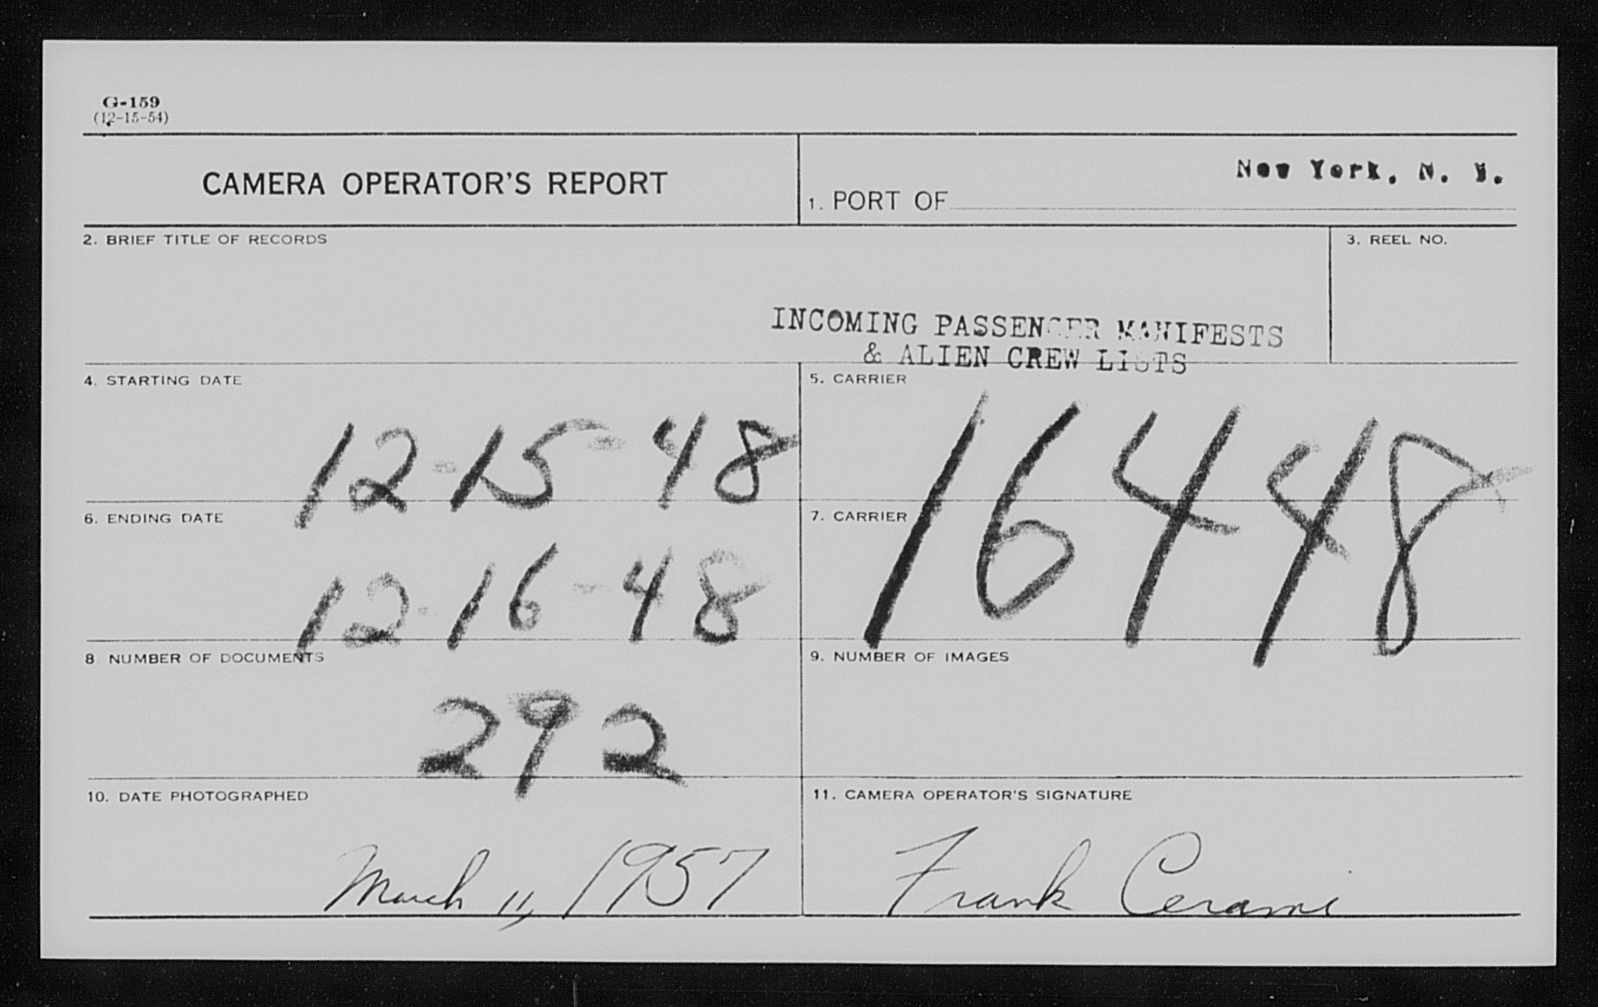 G-159
(12-15-54)
CAMERA OPERATOR'S REPORT
1. PORT OF New York, N. Y.
2. BRIEF TITLE OF RECORDS
3. REEL NO.
INCOMING PASSENGER MANIFESTS
& ALIEN CREW LISTS
4. STARTING DATE
12-15-48
5. CARRIER
16448
6. ENDING DATE
12-16-48
7. CARRIER
8 NUMBER OF DOCUMENTS
292
9. NUMBER OF IMAGES
10. DATE PHOTOGRAPHED
March 11, 1957
11. CAMERA OPERATOR'S SIGNATURE
Frank Cerami